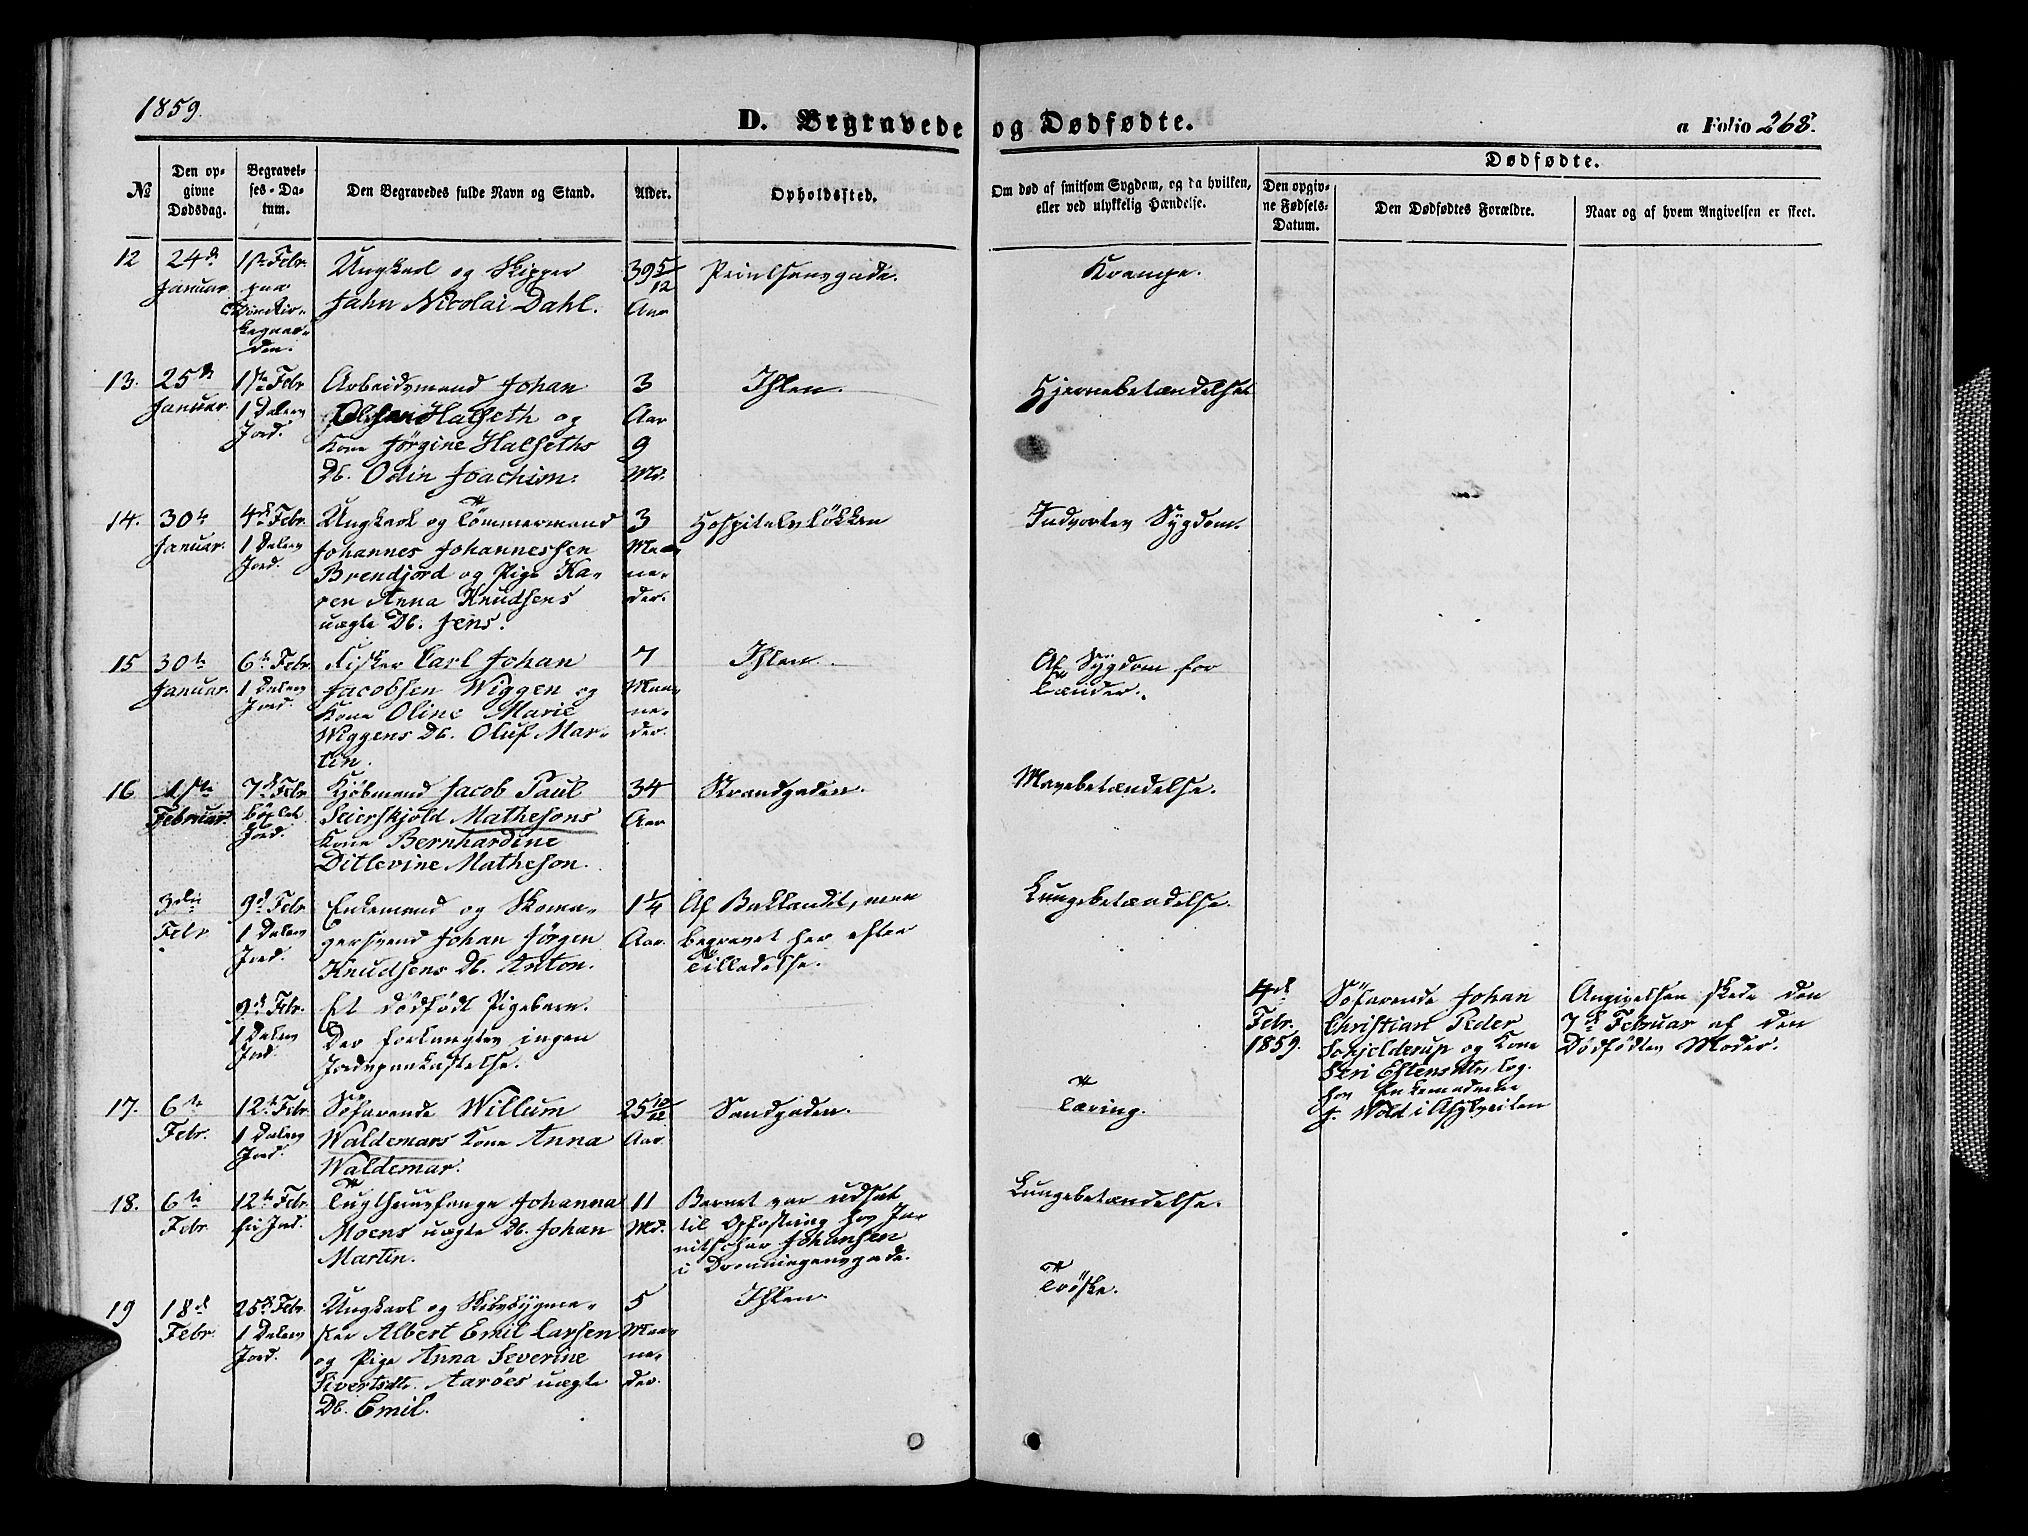 1859.
D. Begravede og Dødfødte.
a Folio 268.
№
Den opgivne Dødsdag.
Begravelses-Datum.
Den Begravedes fulde Navn og Stand.
Alder.
Opholdssted.
Om død af smitsom Sygdom, og da hvilken, eller ved ulykkelig Hændelse.
Dødfødte.
Den opgivne Fødsels-Datum.
Den Dødfødtes Forældre.
Naar og af hvem Angivelsen er skeet.
12 24d Januar 1ste Febr. paa Kirkegaarden.
Ungkarl og Skipper
Jahn Nicolai Dahl.
39 5/12 Aar
Prindsensgade.
Krampe.
13. 25d Januar. 1ste Febr 1 Dalers Jord.
Arbeidsmand Johan
Olsen Halseth og
Kone Jørgine Halseths
Db. Odin Joachim.
3 Aar 9 Md.
Ihlen.
Hjernebetændelse
14. 30te Januar. 4de Febr. 1 Dalers Jord.
Ungkarl og Tömmermand
Johannes Johannessen
Brendjord og Pige Ka-
ren Anna Knudsens
uægte Db. Jens.
3 Maaneder.
Hospitalsløkken
Indvortes Sygdom.
15 30te Januar. 6te Febr. 1 Dalers Jord.
Fisker Carl Johan
Jacobsen Wiggen og
Kone Oline Marie
Wiggens Db. Oluf Mar-
tin.
7 Maaneder.
Ihlen.
Af Sygdom for
Tænder.
16 1ste Februar. 7de Febr. kjøbt Jord.
Kjöbmand Jacob Paul
Seierskjold Mathesons
Kone Bernhardine
Ditlevine Matheson.
34 Aar
Strandgaden.
Mavebetændelse.
3die Febr 9d Febr 1 Dalers Jord.
Enkemand og Skoma-
gersvend Johan Jörgen
Knudsens Db. Anton.
1 1/4 Aar.
Af Baklandet, men
begravet her efter
Tilladelse.
Lungebetændelse.
9d Febr. 1 Dalers Jord.
Et dödfödt Pigebarn.
Der forlangtes ingen
Jordspaakastelse.
4d
Febr.
1859.
Söfarende Johan
Christian Peder
Schjelderup og Kone
Seri Estensdtr, log.
hos Enkemadame
J. Wold i
Angivelsen skede den
7de Februar af den
Dödfödtes Moder.
17. 6te Febr. 12te Febr. 1 Dalers Jord.
Söfarende Willum
Waldemars Kone Anna
Waldemar.
25 10/12 Aar.
Sandgaden.
Tæring.
18. 6te Febr. 12te Febr. fri Jord.
Tugthuusfange Johanna
Moens uægte Db. Johan
Martin.
11 Md.
Barnet var udsat
til Opfostring hos Ja-
nitschar Johansen
i Dronningensgade.
Lungebetændelse.
19 18d Febr. 25de Febr. 1 Dalers Jord.
Ungkarl og Skibsbygme-
ster Albert Emil Larsen
og Pige Anna Severine
Sivertsdtr. Aaröes uægte
Db. Emil.
5 Maaneder
Ihlen.
Tröske.